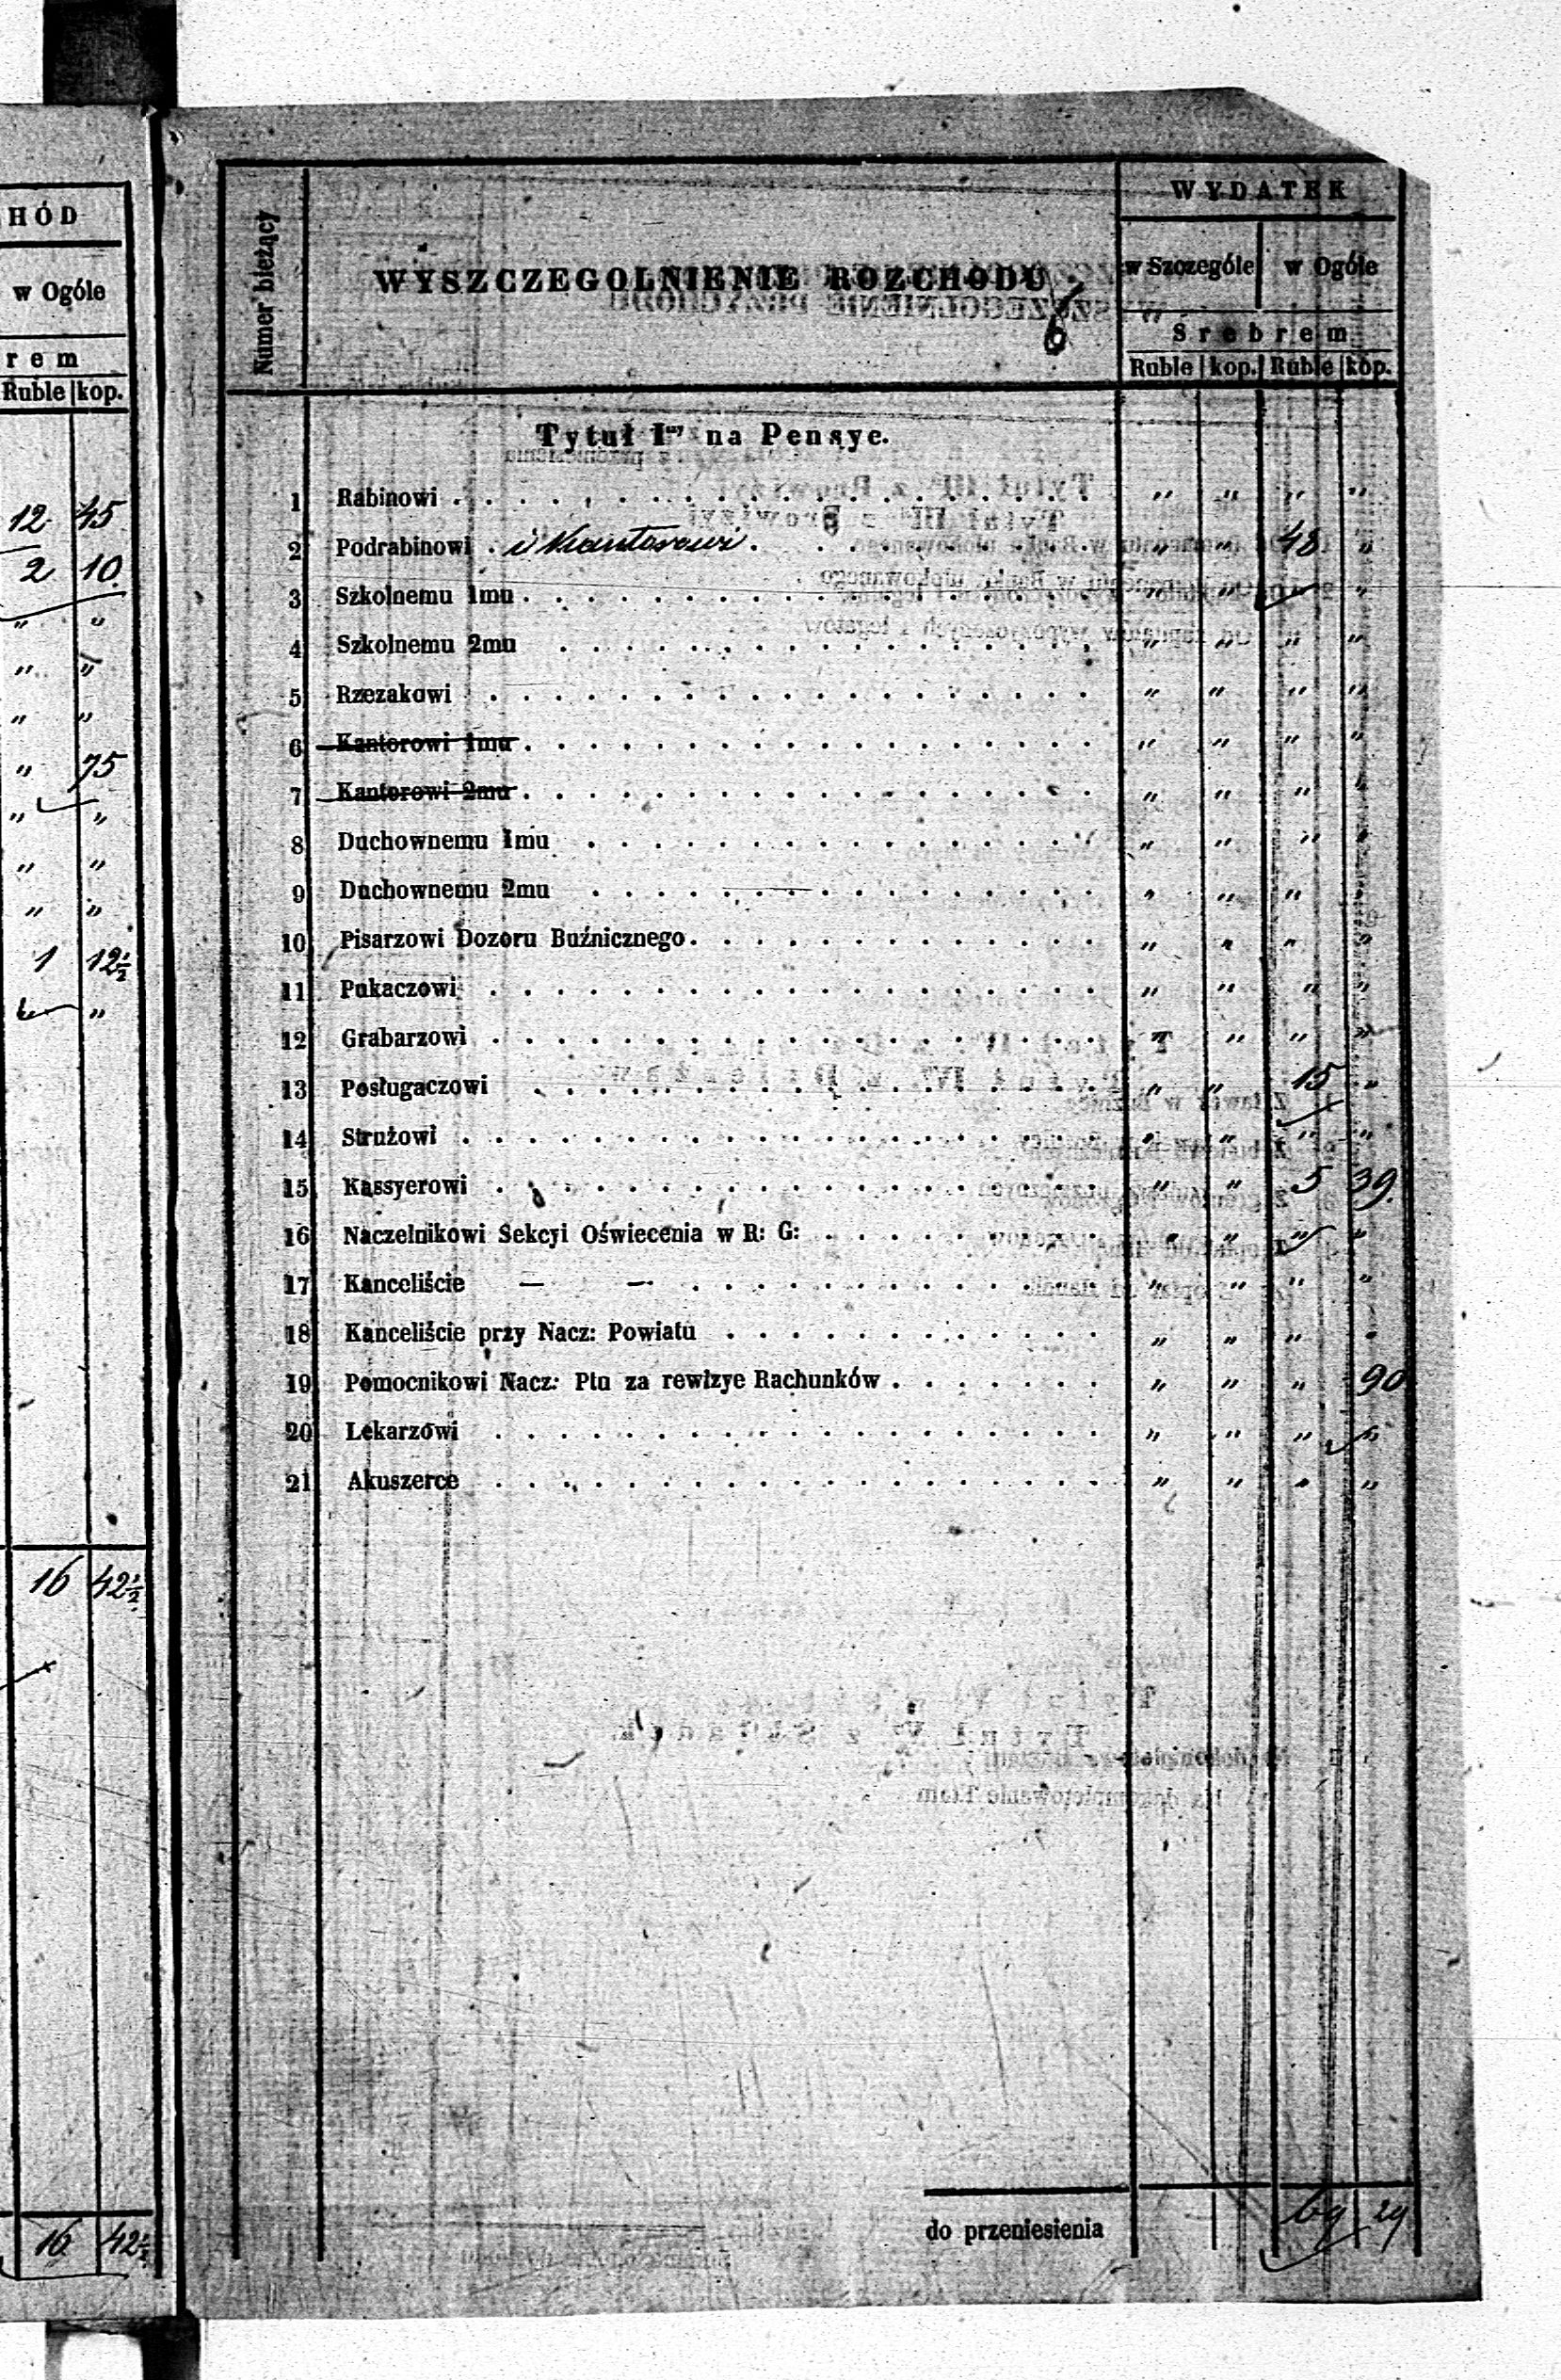 HÓD
w Ogóle
rem
Ruble kop.
12 45
2 10
" "
" "
" "
" 75
" "
" "
" "
1 12½
"
16 42½
16 42½
Numer bieżący
WYSZCZEGOLNIENIE ROZCHODU
6
WYDATEK
w Szczególe w Ogóle
Srebrem
Ruble kop. Ruble kop.
Tytuł Iszy na Pensye.
1 Rabinowi " " " "
2 Podrabinowi i Kantorowi " " 48 "
3 Szkolnemu 1mu " " "
4 Szkolnemu 2mu " " " "
5 Rzezakowi " " " "
6 Kantorowi 1mu " " " "
7 Kantorowi 2mu " " " "
8 Duchownemu 1mu " " " "
9 Duchownemu 2mu " " " "
10 Pisarzowi Dozoru Buźnicznego " " " "
11 Pukaczowi " " " "
12 Grabarzowi " " " "
13 Posługaczowi " " 15 "
14 Strużowi " " " "
15 Kassyerowi " " 5 39
16 Naczelnikowi Sekcyi Oświecenia w R: G: " " " "
17 Kanceliście — — " " " "
18 Kanceliście przy Nacz: Powiatu " " " "
19 Pomocnikowi Nacz: Ptu za rewizye Rachunków " " " 90
20 Lekarzowi " " " "
21 Akuszerce " " " "
do przeniesienia 69 29